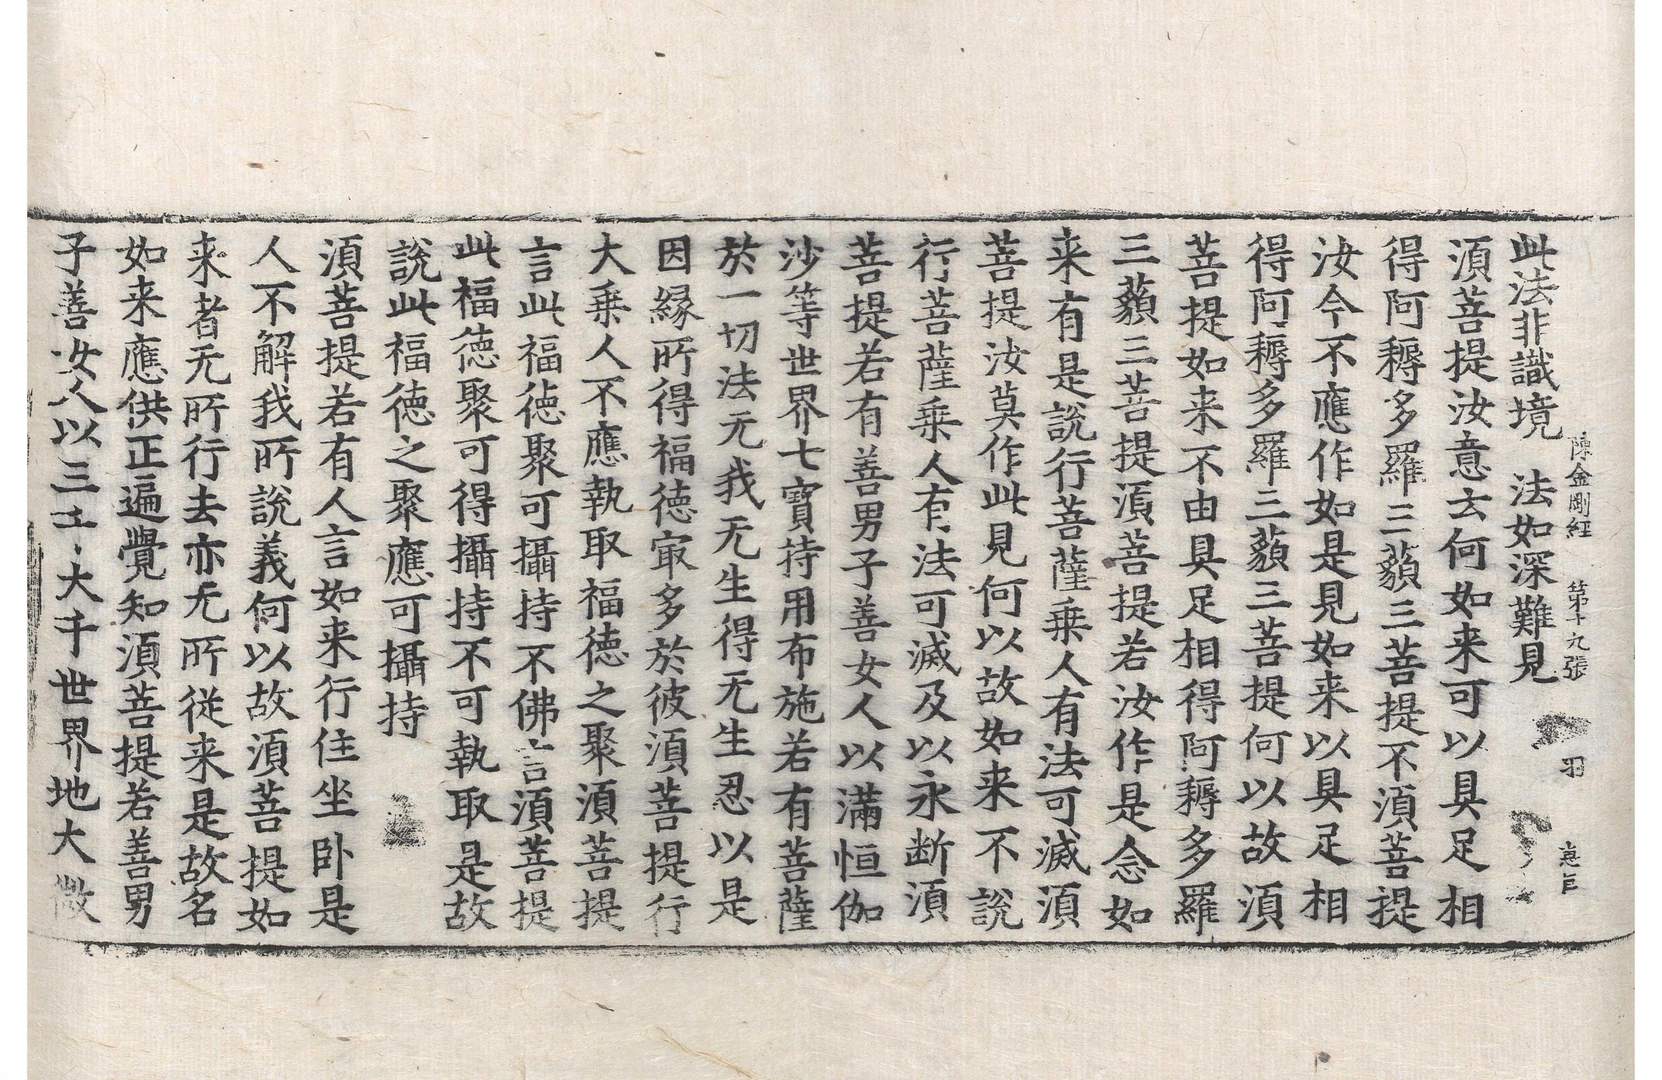 陳金剛経 第十九張 羽
此法非識境 法如深難見
湏菩提汝意云何如来可以具足相
得阿耨多羅三藐三菩提不湏菩提
汝今不應作如是見如来以具足相
得阿耨多羅三藐三菩提何以故湏
菩提如来不由具足相得阿耨多羅
三藐三菩提湏菩提若汝作是念如
来有是說行菩薩乗人有法可滅湏
菩提汝莫作此見何以故如来不說
行菩薩乗人有法可滅及以永断湏
菩提若有善男子善女人以滿恒伽
沙等世界七寶持用布施若有菩薩
於一切法无我无生得无生忍以是
因縁所得福徳冣多於彼湏菩提行
大乗人不應執取福徳之聚湏菩提
言此福徳聚可攝持不佛言湏菩提
此福徳聚可得攝持不可執取是故
說此福徳之聚應可攝持
湏菩提若有人言如来行住坐卧是
人不解我所說義何以故湏菩提如
来者无所行去亦无所従来是故名
如来應供正遍覺知湏菩提若善男
子善女人以三千大千世界地大微